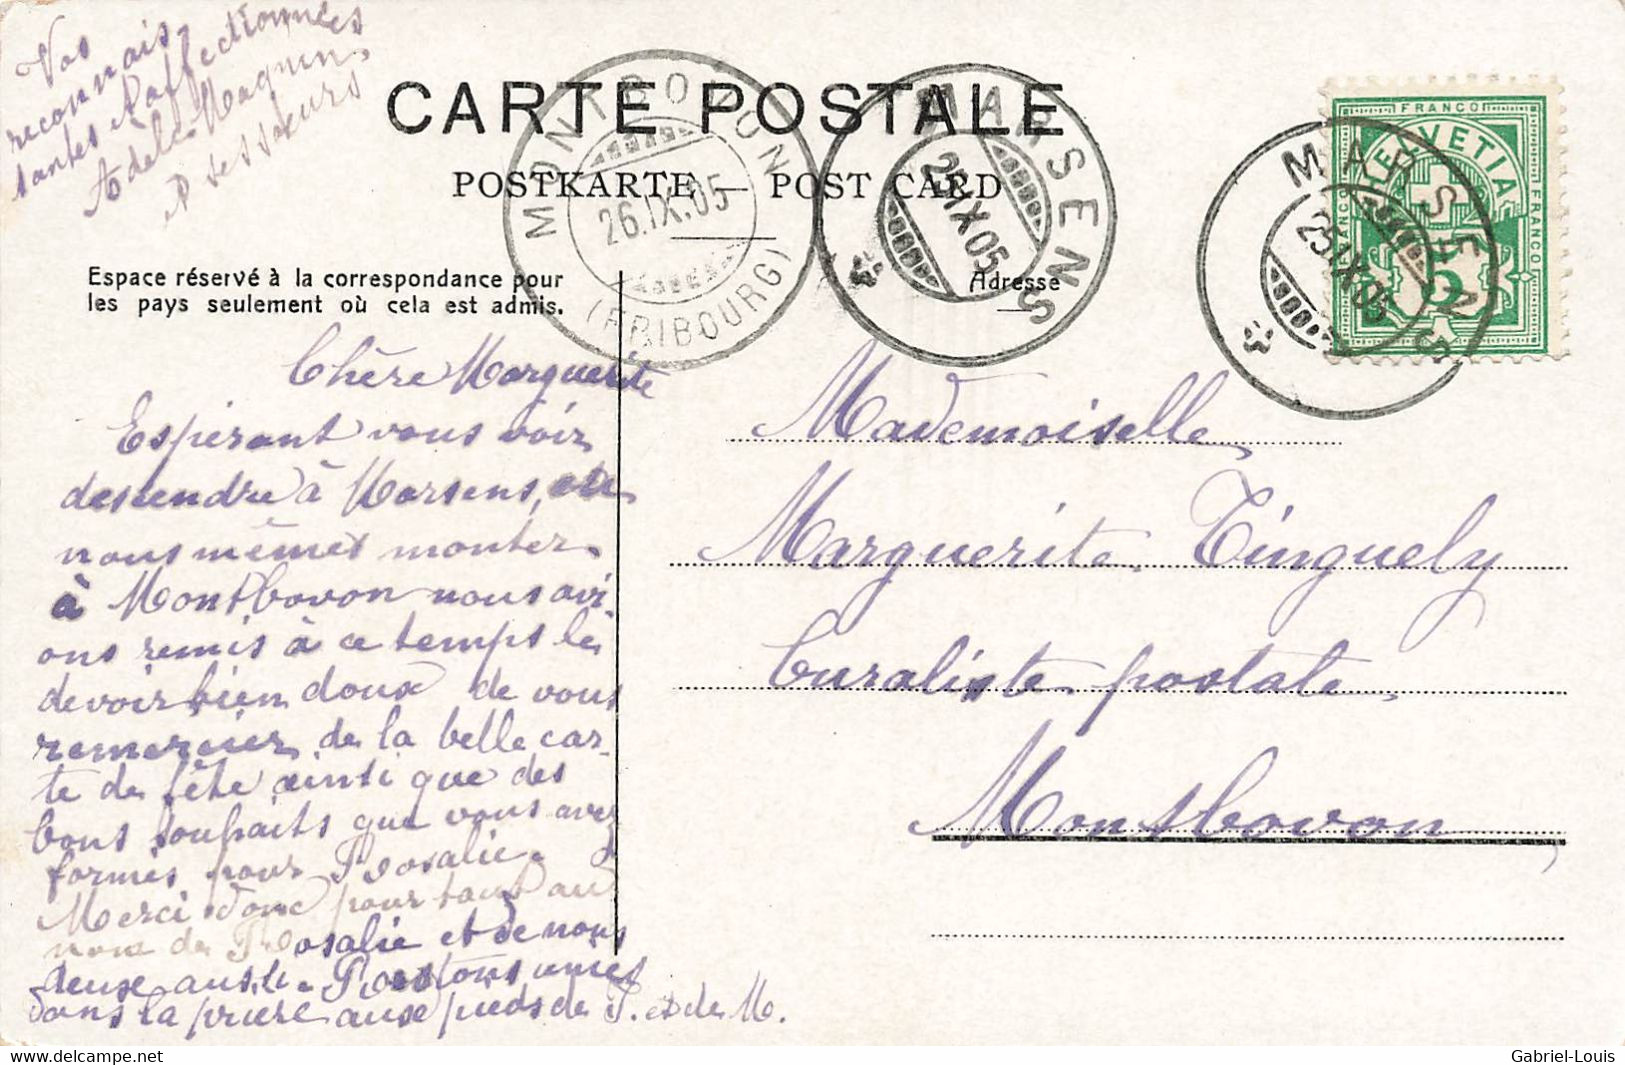 Vos
reconnais-
santes & affectionnées
Adèle Magnin
& ses sœurs
CARTE POSTALE
POSTKARTE — POST CARD
MONTBOVON
26.IX.05
(FRIBOURG)
MARSENS
25.IX.05
MARSENS
25.IX.05
FRANCO
HELVETIA
FRANCO
FRANCO
5
Espace réservé à la correspondance pour
les pays seulement où cela est admis.
Adresse
Chère Marguerite
Espérant vous voir
descendre à Marsens, ou
nous mêmes monter
à Montbovon nous avi-
ons remis à ce temps le
devoir bien doux de vous
remercier de la belle car-
te de fête ainsi que des
bons souhaits que vous avez
formés pour Rosalie.
Merci donc pour tout au
nom de Rosalie et de nous
deux aussi. Restons unies
dans la prière aux pieds de J. et de M.
Mademoiselle
Marguerite Tinguely
Buraliste postale
Montbovon
delcampe.net
Gabriel-Louis